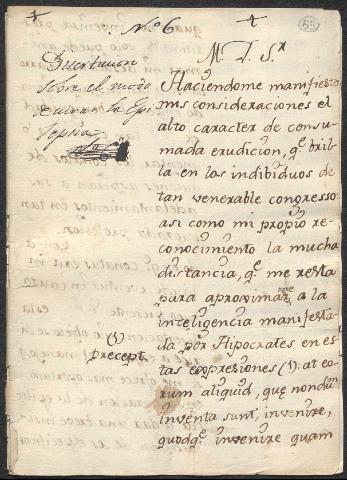 Nº 6
65
M. I. Sr
Disertacion
sobre el modo
de curar la Epi
lepsia
Haciendome manifiesto
mis consideraciones el
alto caracter de consu-
mada erudicion, qe bri-
lla en los indibiduos de
tan venerable congresso:
asi como mi propio re-
conocimiento la mucha
distancia, qe me resta
para aproximarme a la
inteligencia manifesta-
da por Hipocrates en es-
tas expresiones (1): at eo-
rum aliquid, quę nondum
inventa sunt, invenire,
quodqe invenire quam
(1)
precept.